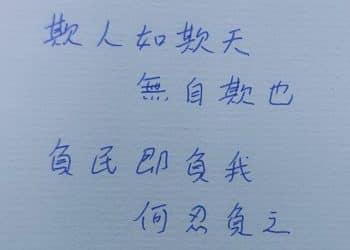 欺人如欺天
無自欺也
負民即負我
何忍負之